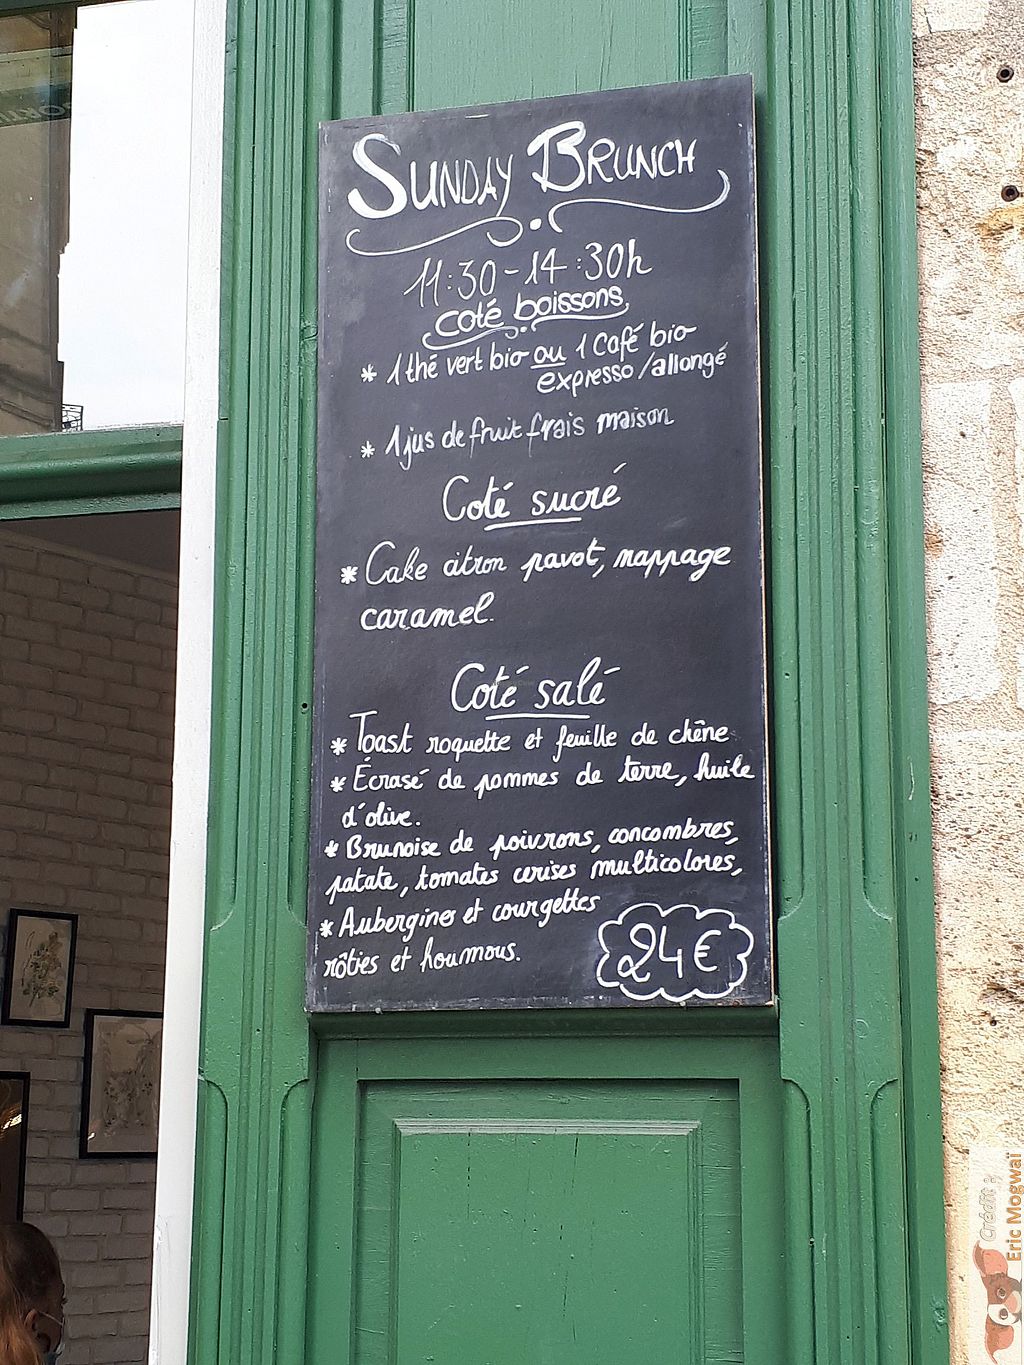 SUNDAY BRUNCH
11:30-14:30h
coté boissons
* 1 thé vert bio ou 1 café bio
expresso/allongé
* 1 jus de fruit frais maison
Coté sucré
* Cake citron pavot, nappage
caramel.
Coté salé
* Toast roquette et feuille de chêne
* Écrasé de pommes de terre, huile
d'olive.
* Brunoise de poivrons, concombres,
patate, tomates cerises multicolores,
* Aubergines et courgettes
rôties et houmous.
24€
Crédit :
Eric Mogwaï